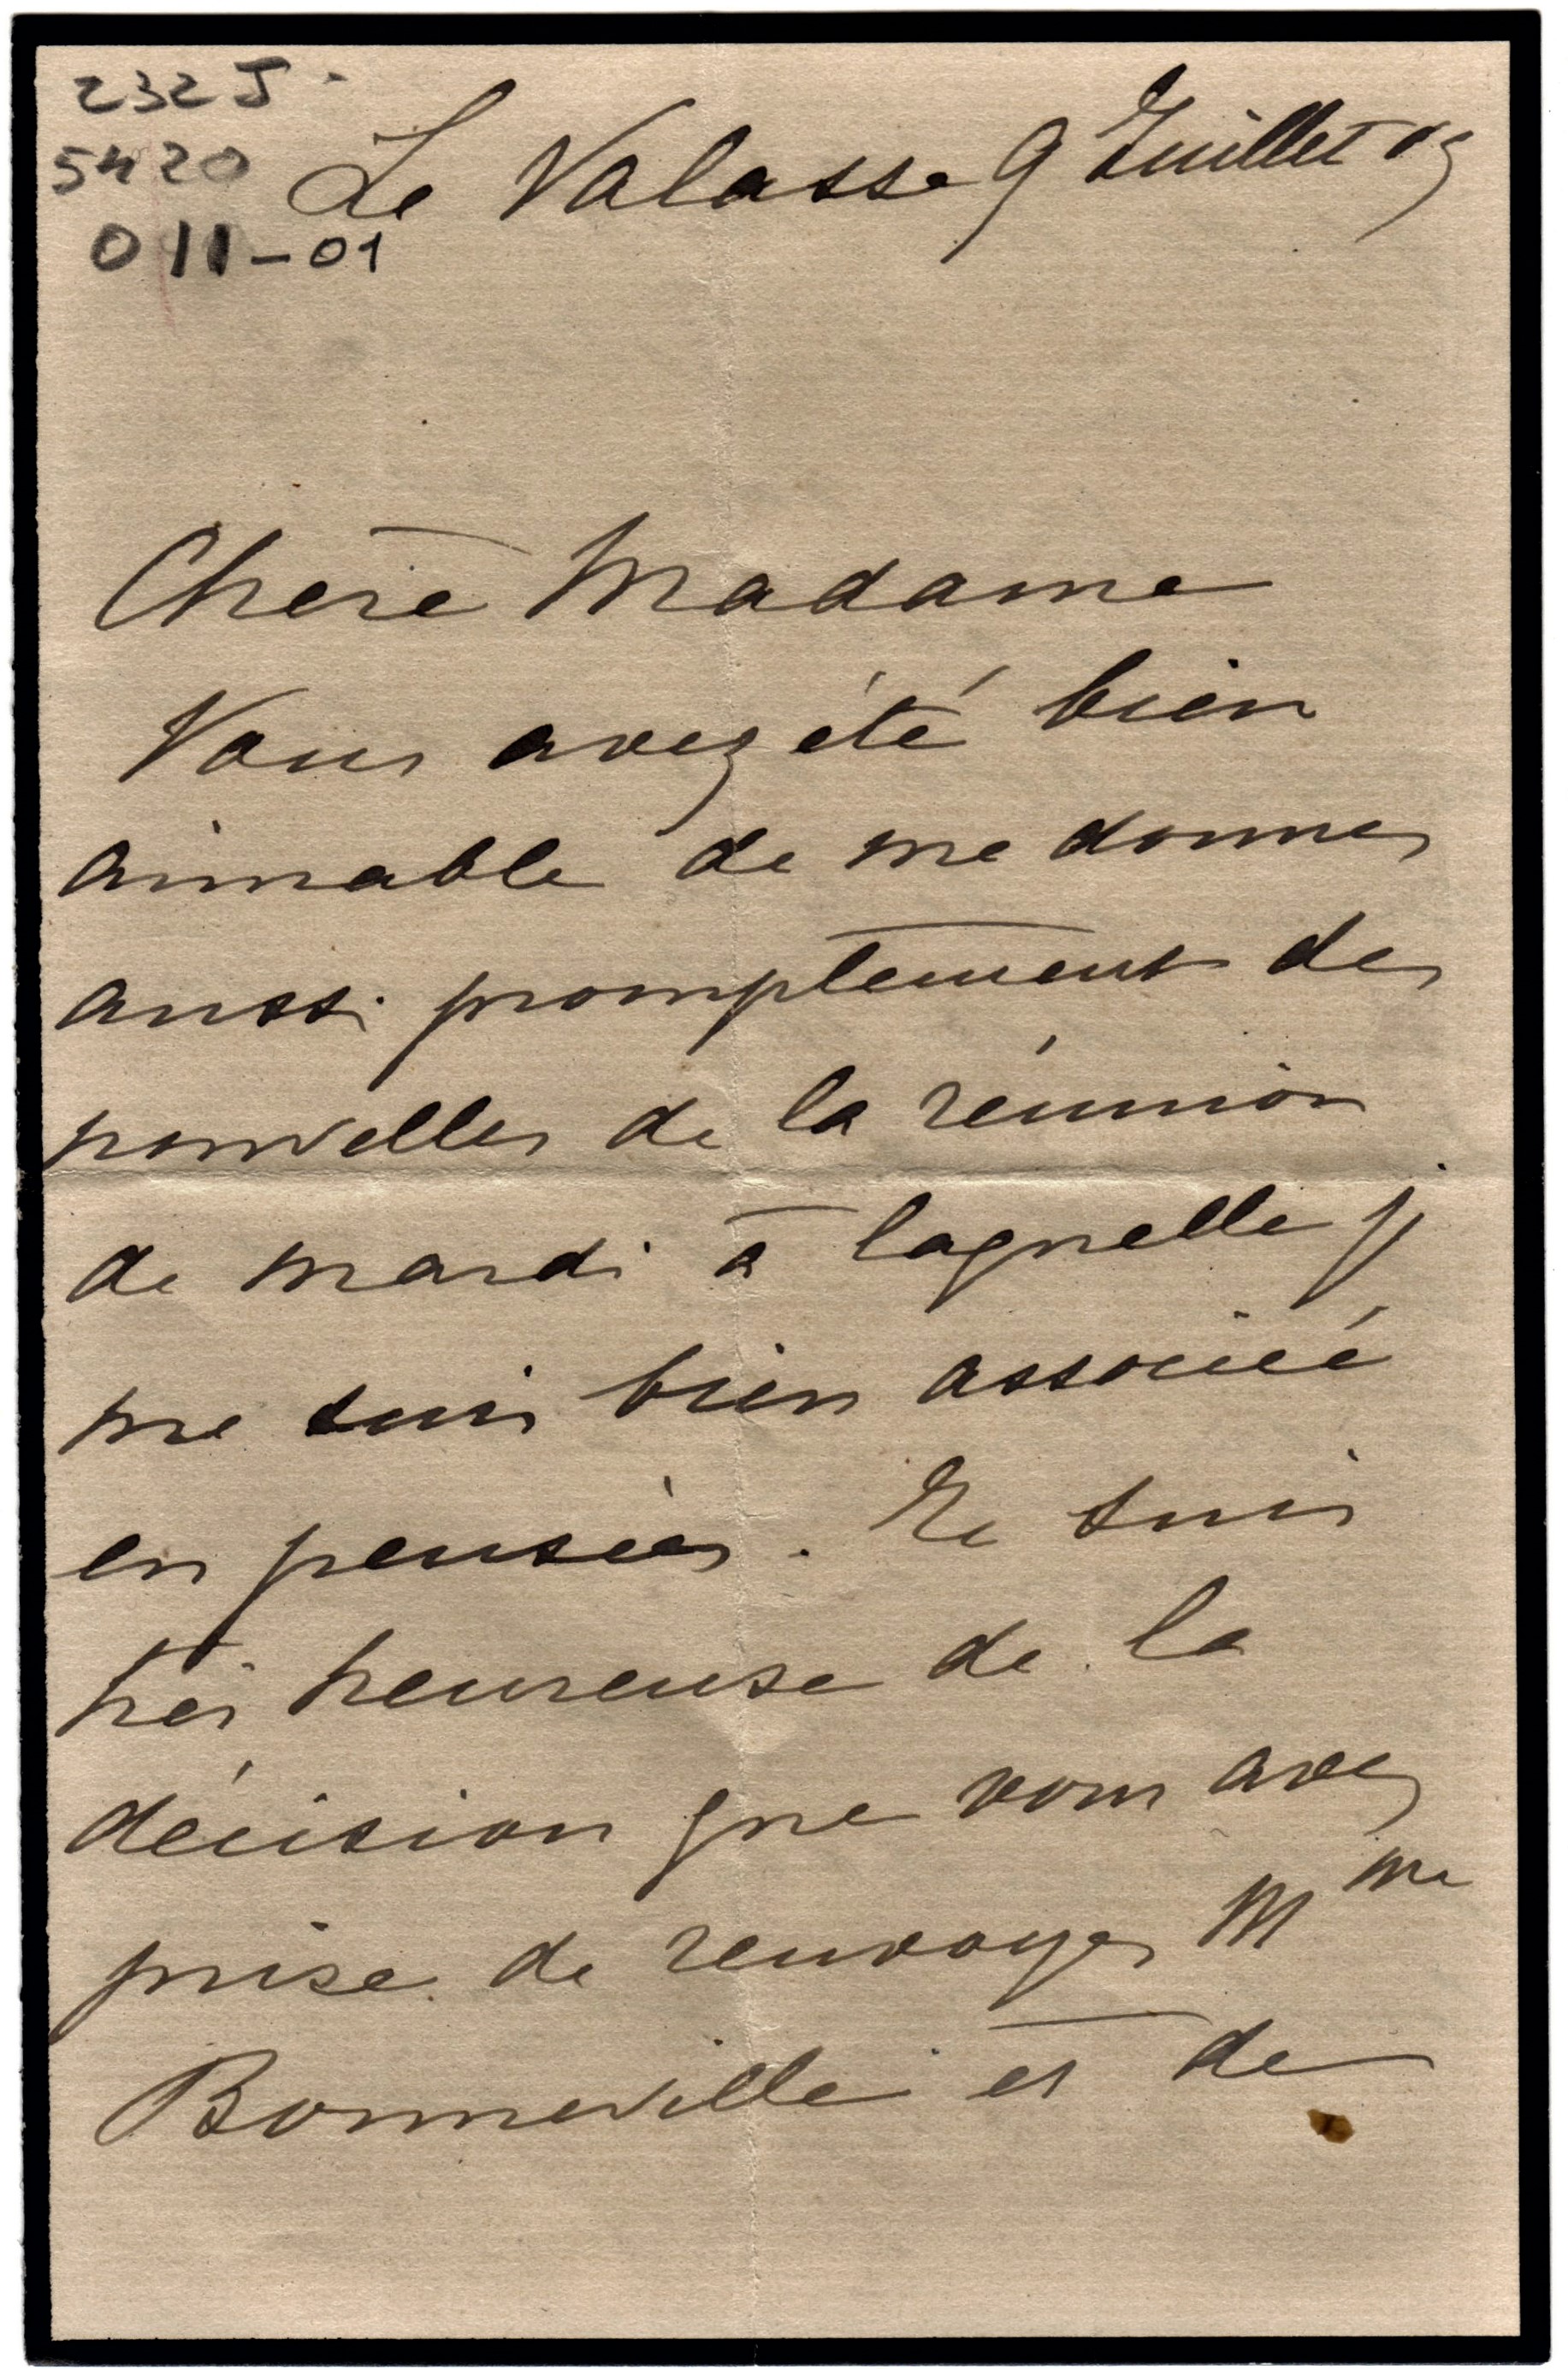 232 J
5420
011-01
Le Valasse 9 Juillet 09
Chère Madame
Vous avez été bien
aimable de me donner
aussi promptement des
nouvelles de la réunion
de mardi à laquelle j
me suis bien associée
en pensées. Je suis
très heureuse de la
décision que vous avez
prise de renvoyer Mme
Bonneville et de